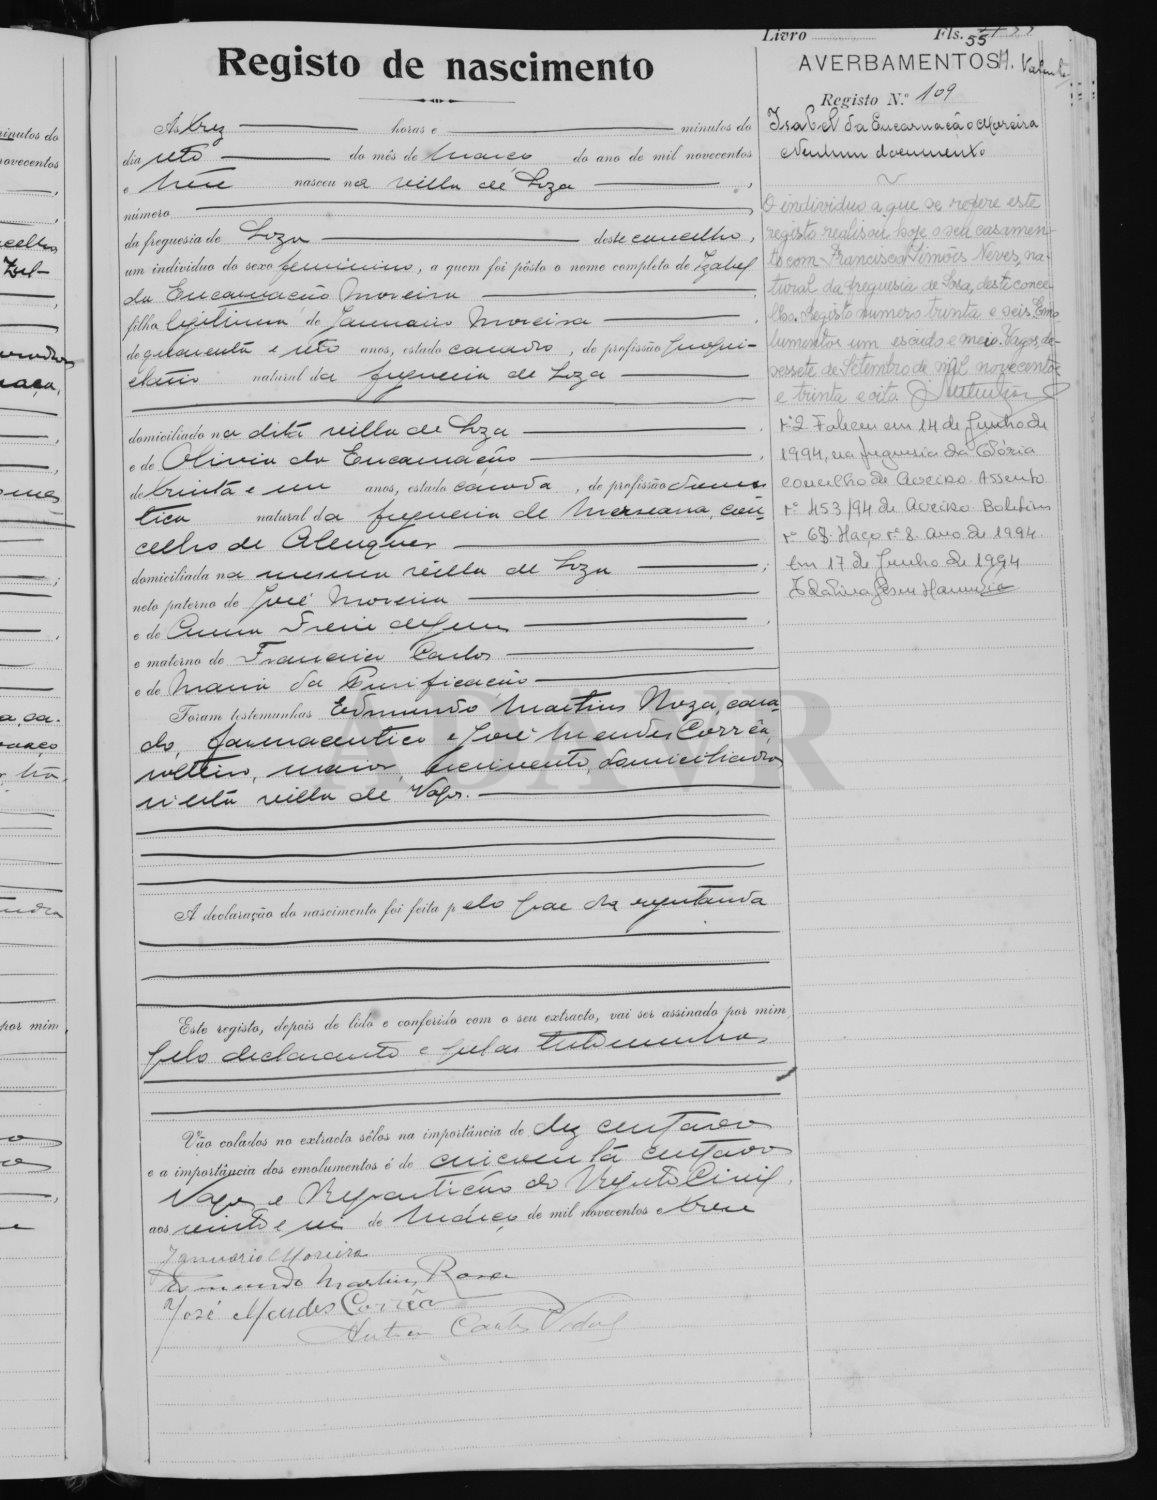 Livro Fls. 55
Registo de nascimento
AVERBAMENTOS
Registo N.º 109
Às trez horas e minutos do
dia oito do mês de Março do ano de mil novecentos
e treze nasceu na villa de Soza,
número
da freguesia de Soza deste concelho,
um individuo do sexo feminino, a quem foi pôsto o nome completo de Izabel
da Encarnação Moreira
filha legitima de Januario Moreira,
de quarenta e oito anos, estado casado, de profissão proprie-
tario natural da freguesia de Soza
domiciliado na dita villa de Soza
e de Olivia da Encarnação,
de trinta e um anos, estado casada, de profissão domes
tica natural da freguesia de Merceana, con-
celho de Alenquer
domiciliada na mesma villa de Soza;
neto paterno de José Moreira
e de Anna de Jesus,
e materno de Francisco Carlos
e de Maria da Purificação
Foram testemunhas Edmundo Martins Roza, casa-
do, farmaceutico e José Mendes Corrêa,
solteiro, maior, domiciliados
n'esta villa de Vagos.
A declaração do nascimento foi feita pelo pae da registanda
Este registo, depois de lido e conferido com o seu extracto, vai ser assinado por mim,
pelo declarante e pelas testemunhas
Vão colados no extracto sêlos na importância de dez centavos
e a importância dos emolumentos é de cincoenta centavos
Vagos e Repartição do Registo Civil,
aos vinte e seis de Março de mil novecentos e treze
Januario Moreira
Edmundo Martins Rosa
José Mendes Corrêa
Carlos Vidal
Isabel da Encarnação Moreira
Nenhum documento
O individuo a que se refere este
registo realisou hoje o seu casamen-
to com Francisco Simões Neves, na-
tural da freguesia de Sosa, deste conce-
lho. Registo numero trinta e seis. Emo
lumentos um escudo e meio. Vagos, de-
zessete de Setembro de mil novecentos
e trinta e oito.
Nº2 Faleceu em 14 de Junho de
1994, na freguesia da Glória
concelho de Aveiro. Assento
nº 453/94 de Aveiro. Boletim
nº 68. Maço nº 8. Ano de 1994.
Em 17 de Junho de 1994
ADAVR